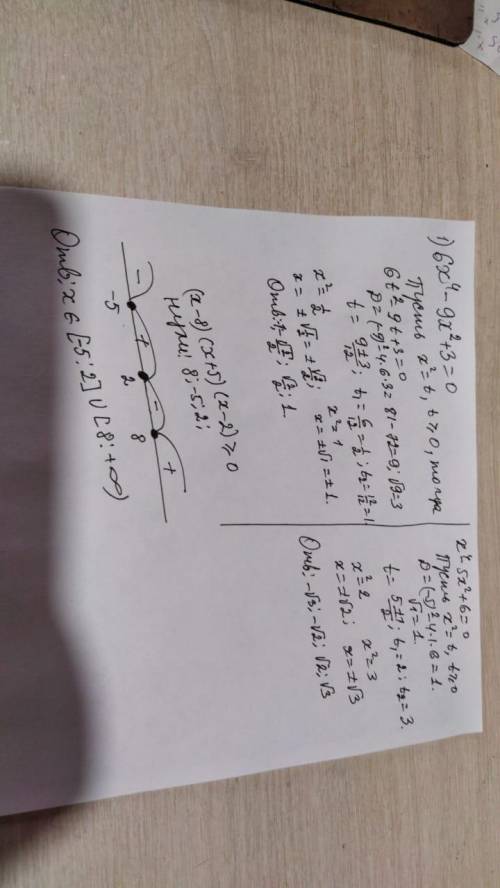 1) 6x⁴ - 9x² + 3 = 0
Пусть x² = t, t ≥ 0, тогда
6t² - 9t + 3 = 0
D = (-9)² - 4·6·3 = 81 - 72 = 9; √9 = 3
t = (9±3)/12; t₁ = 6/12 = 1/2; t₂ = 12/12 = 1.
x² = 1/2 x² = 1
x = ±√(1/2) = ±√2/2; x = ±√1 = ±1.
Отв: -√2/2; √2/2; 1.
(x-8)(x+5)(x-2) ≥ 0
нули: 8; -5; 2;
- + - +
-5 2 8
Отв: x ∈ [-5; 2] ∪ [8; +∞)
x⁴ - 5x² + 6 = 0
Пусть x² = t, t ≥ 0
D = (-5)² - 4·1·6 = 1.
√1 = 1.
t = (5±1)/2; t₁ = 2; t₂ = 3.
x² = 2 x² = 3
x = ±√2; x = ±√3
Отв: -√3; -√2; √2; √3